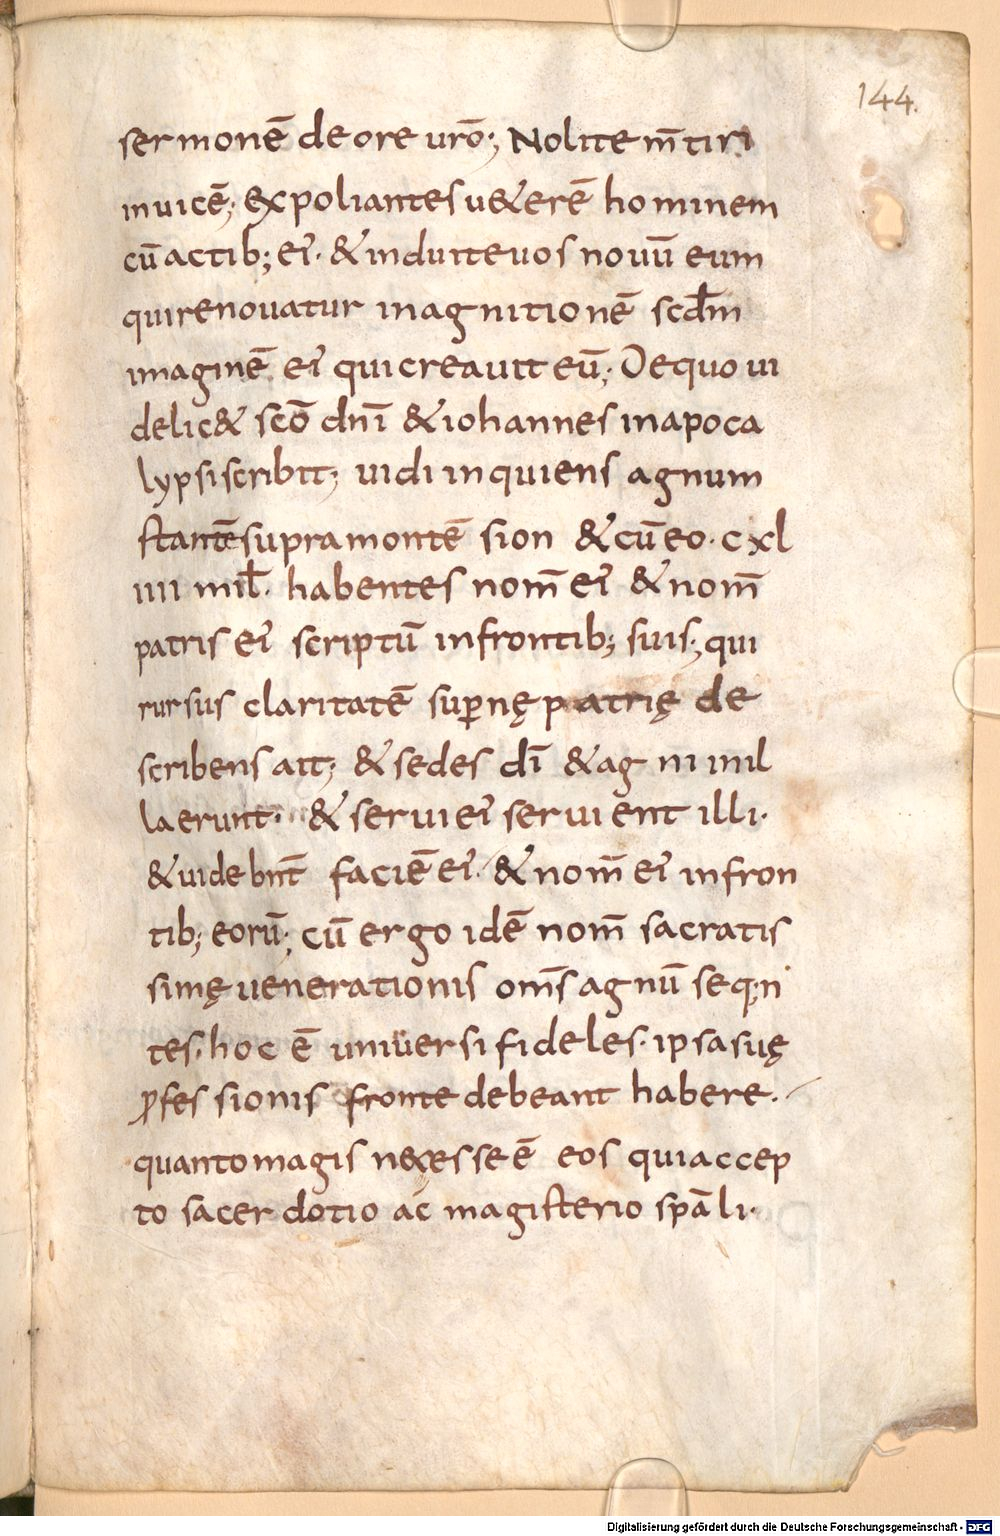 144.
sermonē de ore uro̅; Nolite m̅tiri
inuicē; expoliantes ue&erē hominem
cū actib; ei᾿· & induite uos nouū eum
qui renouatur in agnitionē scd̅m
imaginē ei᾿ qui creauit eū; De quo ui
delic& sco̅ dni̅ & iohannes in apoca
lypsi scribit; uidi inquiens agnum
stantē supra montē sion & cū eo· cxl
iiii mil̅· habentes nom̅ ei᾿ & nom̅
patris ei᾿ scriptū in frontib; suis; qui
rursus claritatē sup̲nę patrię de
scribens ait; & sedes di̅ & agni in il
la erunt· & serui ei᾿ seruient illi·
& uidebnt̅ faciē ei᾿· & nom̅ ei᾿ in fron
tib; eorū; cū ergo idē nom̅ sacratis
simę uenerationis om̅s agnū seq;n
tes· hoc ē uniuersi fideles· ipsa suę
ꝓfessionis fronte debeant habere·
quanto magis necesse ē eos qui accep
to sacerdotio ac magisterio spa̅li·
Digitalisierung gefördert durch die Deutsche Forschungsgemeinschaft - DFG